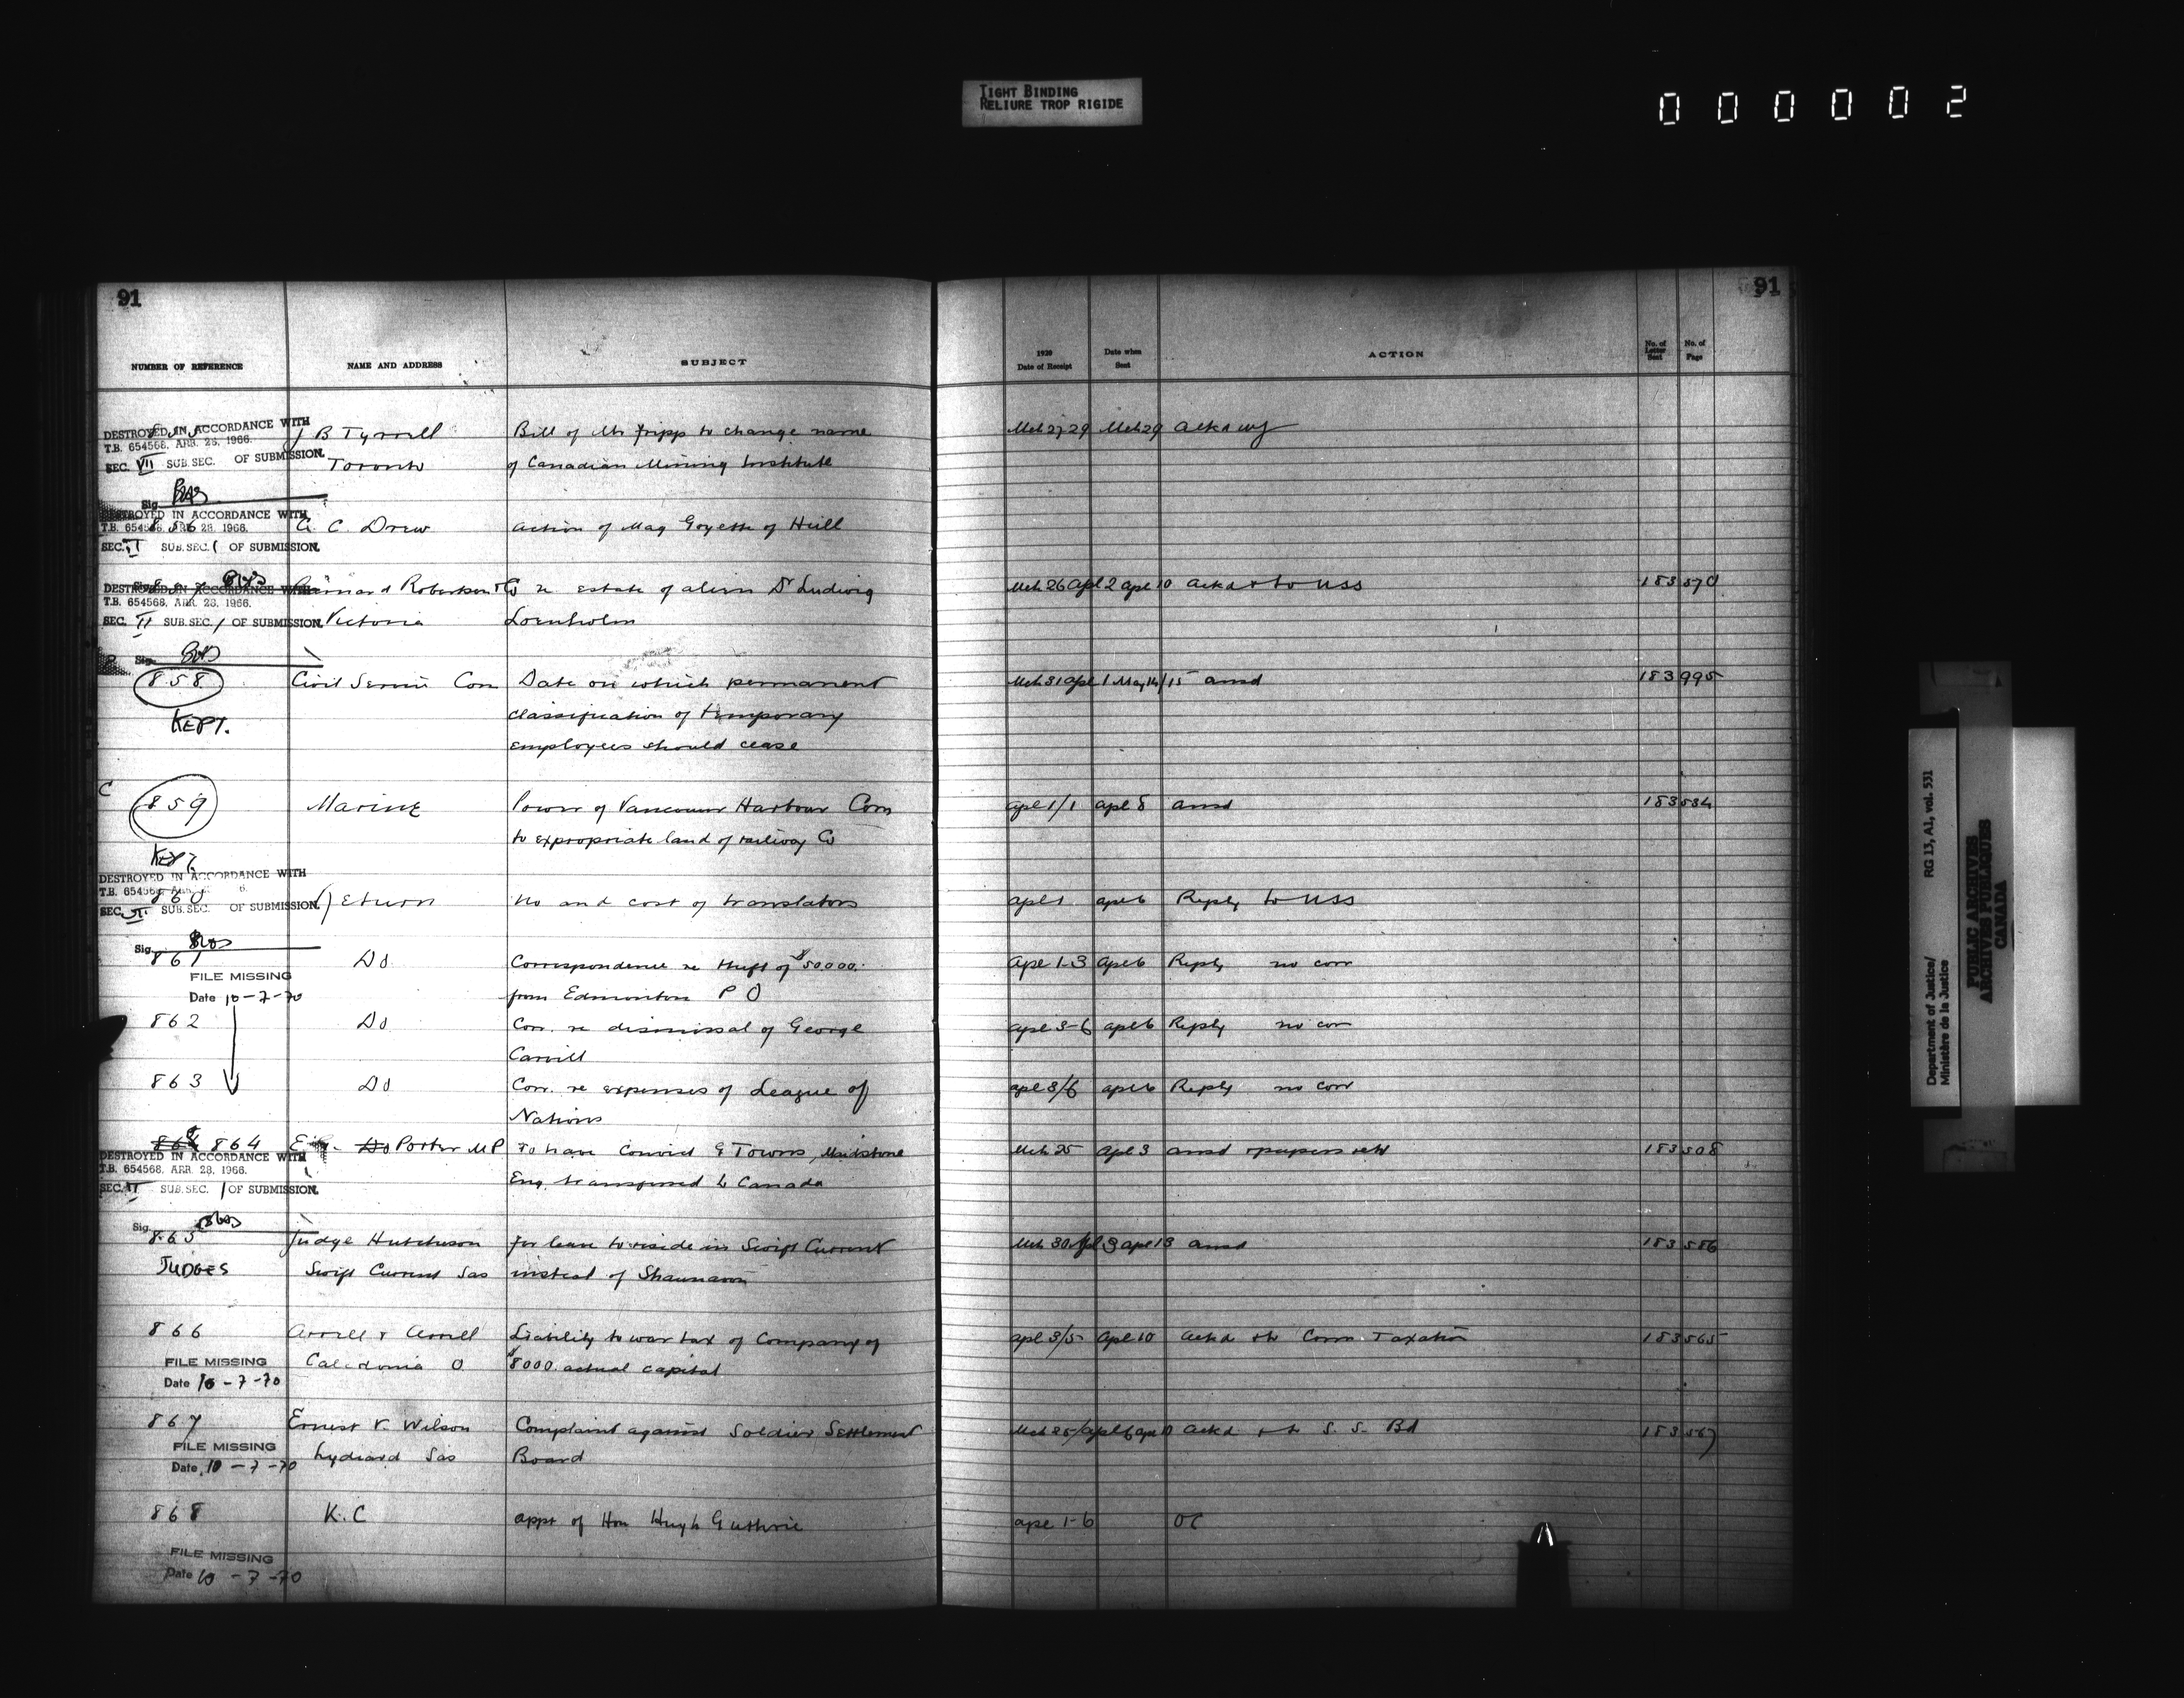 TIGHT BINDING
RELIURE TROP RIGIDE
000002
91 91
NUMBER OF REFERENCE NAME AND ADDRESS SUBJECT 1920 Date of Receipt Date when Sent ACTION No. of Letter Sent No. of Page
DESTROYED IN ACCORDANCE WITH
T.B. 654568. APR. 28. 1966.
SEC. VII SUB. SEC. OF SUBMISSION.
Sig.
J B Tyrrell Bill of Mr Fripp to change name Mch 27 29 Mch 29 Ackd
Toronto of Canadian Mining Institute
DESTROYED IN ACCORDANCE WITH
T.B. 654568. APR. 28. 1966.
SEC. II SUB. SEC. 1 OF SUBMISSION.
856 C. Drew Action of Mag Goyette of Hull
DESTROYED IN ACCORDANCE WITH
T.B. 654568. APR. 28. 1966.
SEC. II SUB. SEC. 1 OF SUBMISSION.
Sig.
Robertson & Co re estate of alien Dr Ludwig Mch 26 Apl 2 Apl 10 Ackd & to USS 183570
Victoria
858 Civil Service Com Date on which permanent Mch 31 Apl 1 May 14/15 ansd 183995
KEPT. classification of temporary
employees should cease
C
859 Marine Power of Vancouver Harbour Com apl 1/1 apl 8 ansd 183534
KEPT. to expropriate land of railway Co
DESTROYED IN ACCORDANCE WITH
T.B. 654568
SEC. II SUB. SEC. OF SUBMISSION.
Sig.
860 Return No and cost of translators apl 1 apl 6 Reply to USS
861 Do Correspondence re theft of $50.000. apl 1-3 apl 6 Reply no corr
FILE MISSING
Date 10-7-70
from Edmonton P O
862 Do Corr. re dismissal of George apl 3-6 apl 6 Reply no corr
Carvill
863 Do Corr. re expenses of League of apl 3/6 apl 6 Reply no corr
Nations
864 Do Porter MP To have Convict G Towns, Maidstone Mch 25 Apl 3 ansd & papers retd 183508
Eng. transferred to Canada
DESTROYED IN ACCORDANCE WITH
T.B. 654568. APR. 28. 1966.
SEC. II SUB. SEC. 1 OF SUBMISSION.
Sig.
865 Judge Hutcheson for leave to reside in Swift Current Mch 30 Apl 3 apl 13 ansd 183586
JUDGES Swift Current Sas instead of Shaunavon
866 Arrell & Arrell Liability to war tax of Company of apl 3/5 Apl 10 Ackd & to Com Taxation 183565
Caledonia O $8000. actual capital
FILE MISSING
Date 10-7-70
867 Ernest V. Wilson Complaint against Soldier Settlement Mch 25/Apl 6 apl 10 Ackd & to S. S. Bd 183567
FILE MISSING
Date 10-7-70
Lydiard Sas Board
868 K.C appt of Hon Hugh Guthrie apl 1-6 OC
FILE MISSING
Date 10-7-70
Department of Justice/
Ministère de la Justice
RG 13, A1, vol. 531
PUBLIC ARCHIVES
ARCHIVES PUBLIQUES
CANADA